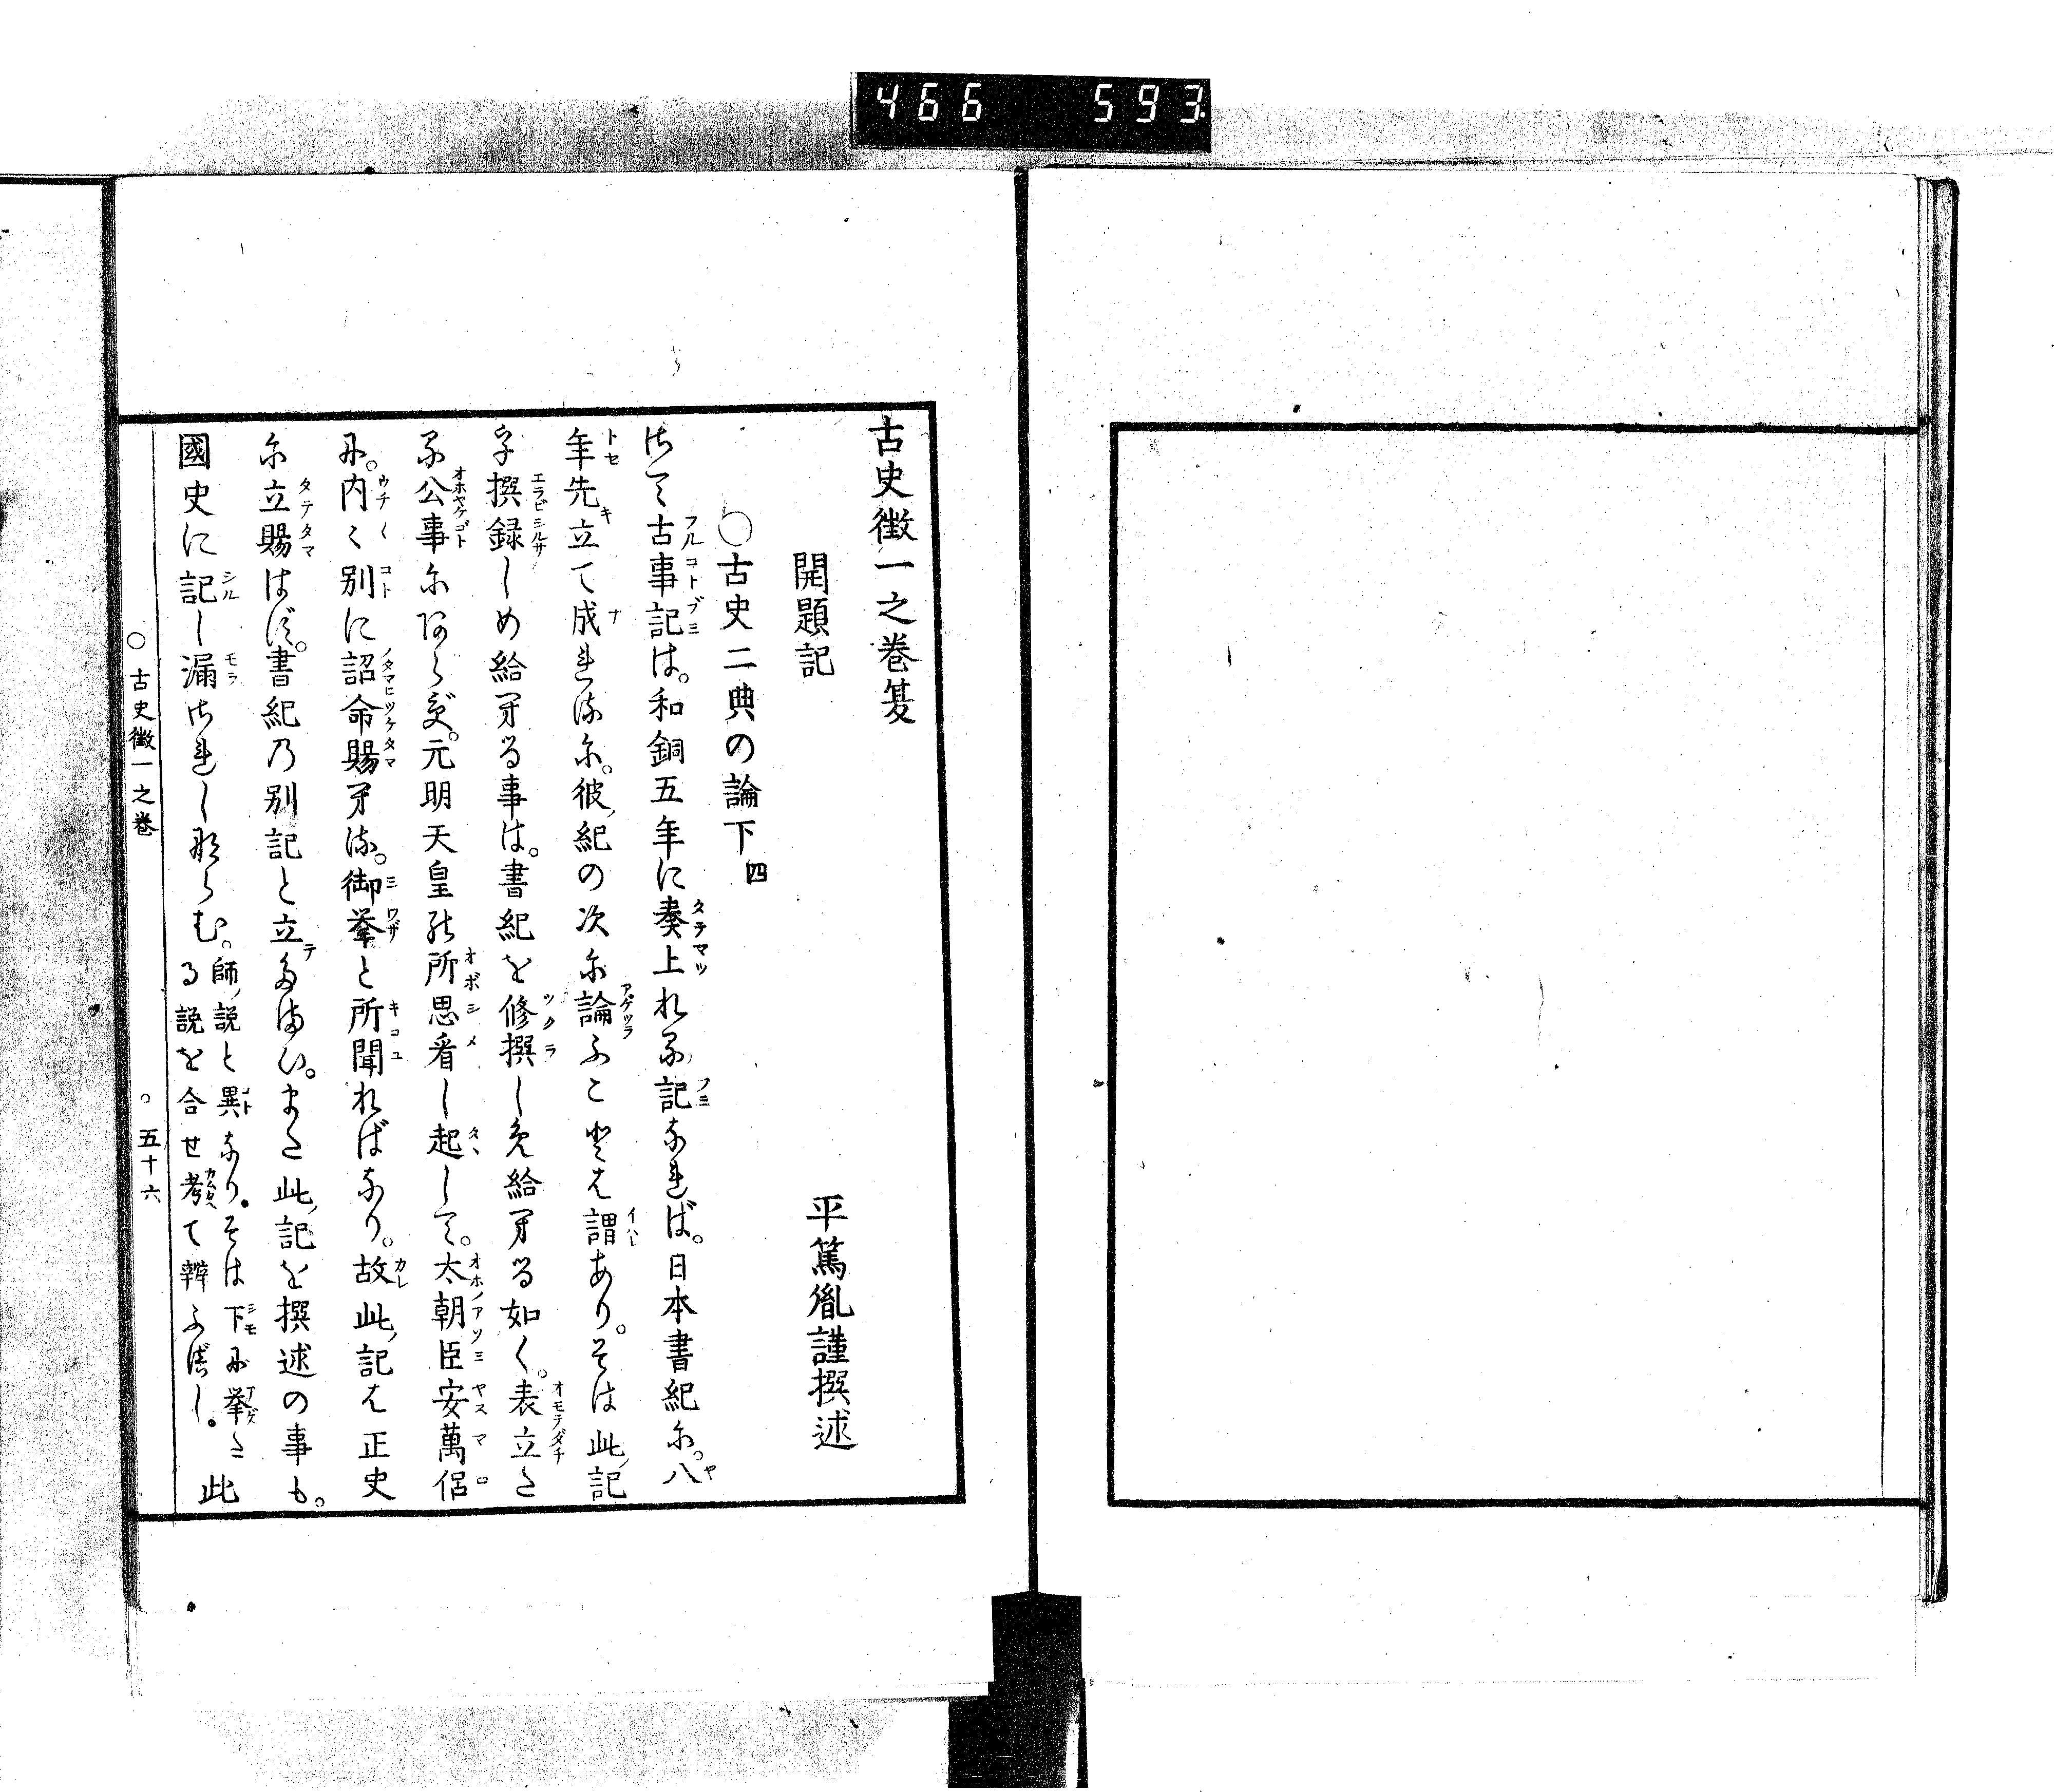 466 593
古史徴一之巻夏
開題記
平篤胤謹撰述
〇古史二典の論下四
さて古事記は。和銅五年に奏上れる記なれば。日本書紀に。八
年先立て成れるに。彼紀の次に論ふことは謂あり。そは此記
字撰録しめ給へる事は。書紀を修撰しめ給へる如く。表立た
る公事にあらず。元明天皇の所思看し起して。太朝臣安萬侶
に。内々別に詔命賜へる。御挙と所聞ればなり。故此記は正史
に立賜はず。書紀乃別記と立たまひ。また此記を撰述の事も。
國史に記し漏されしならむ。師説と異なり。そは下に挙たる説を合せ考て辨ふべし。此
〇古史徴一之巻 〇五十六